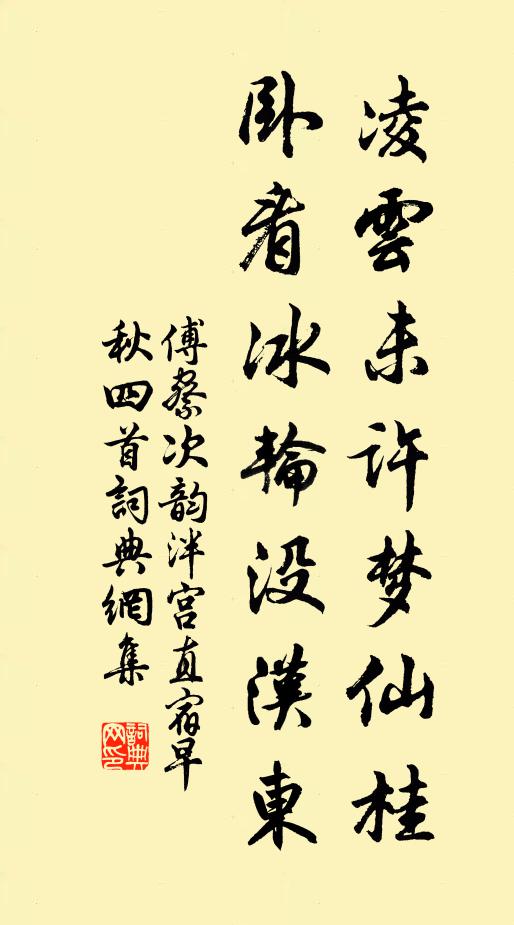 凌雲未许梦仙桂
卧看冰輪没漢東
傅察次韵泮宫直宿早
秋四首詞典網集
詞典网印